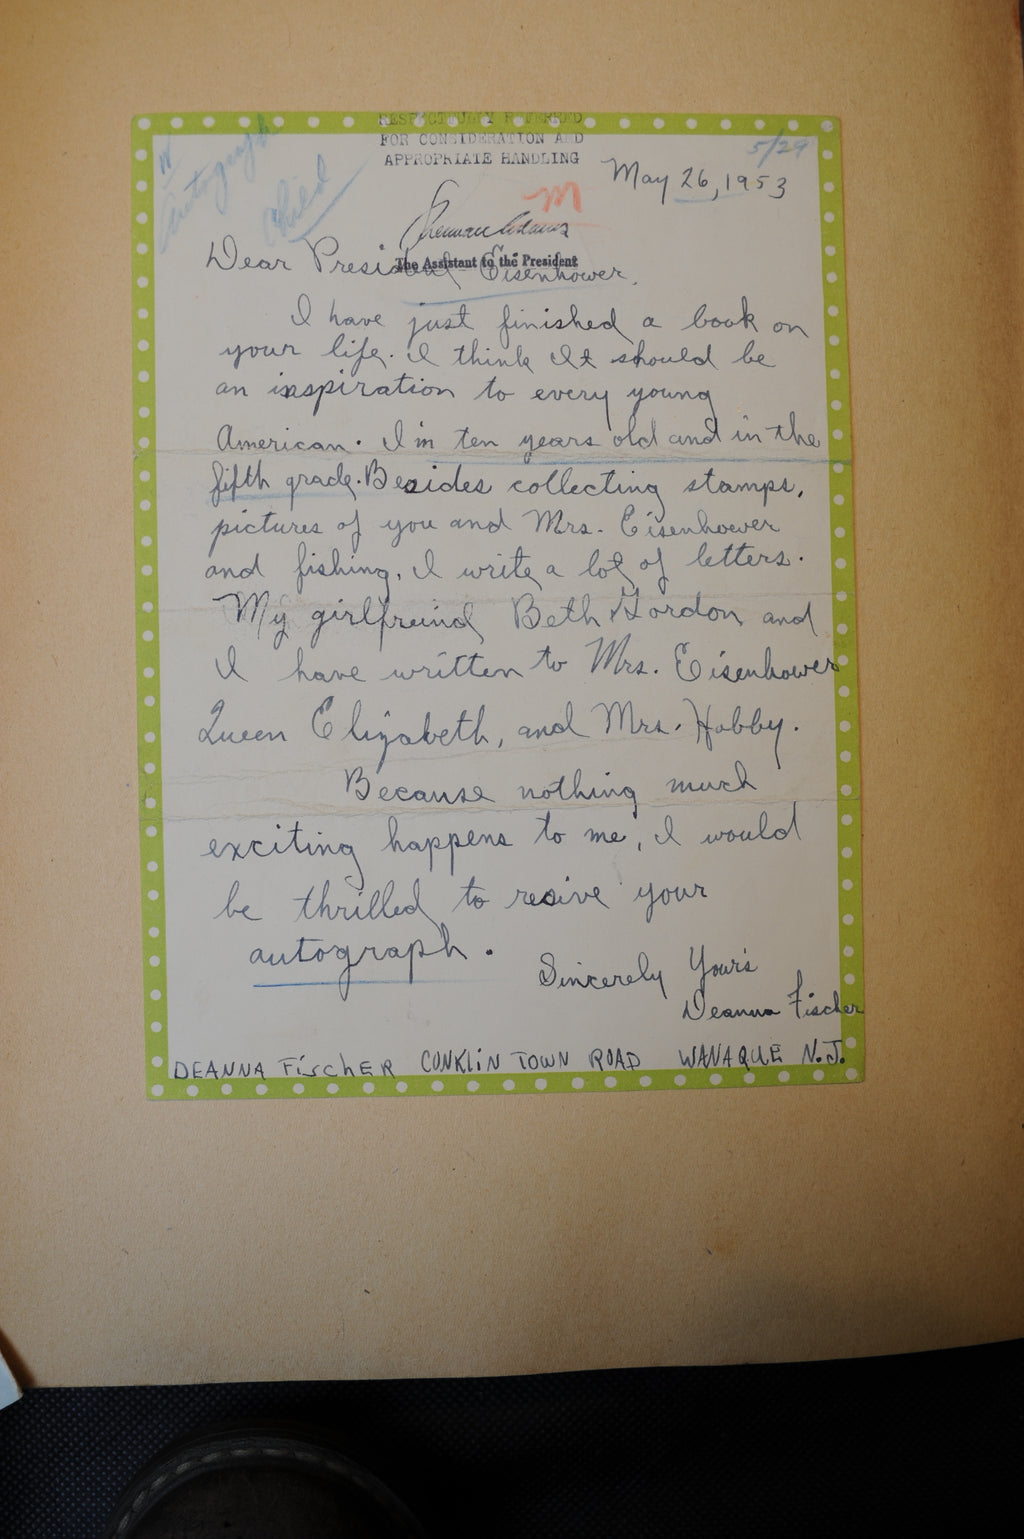 RESPECTFULLY REFERRED
FOR CONSIDERATION AND
APPROPRIATE HANDLING
Autograph
Child
5/29
May 26, 1953
M
Sherman Adams
The Assistant to the President
Dear President Eisenhower,
I have just finished a book on
your life. I think It should be
an inspiration to every young
American. I'm ten years old and in the
fifth grade. Besides collecting stamps,
pictures of you and Mrs. Eisenhoewer
and fishing, I write a lot of letters.
My girlfreind Beth Gordon and
I have written to Mrs. Eisenhower
Queen Elizabeth, and Mrs. Hobby.
Because nothing much
exciting happens to me, I would
be thrilled to recive your
autograph.
Sincerely Your's
Deanna Fischer
DEANNA FiscHER CONKLiN TOWN ROAD WANAQUE N.J.